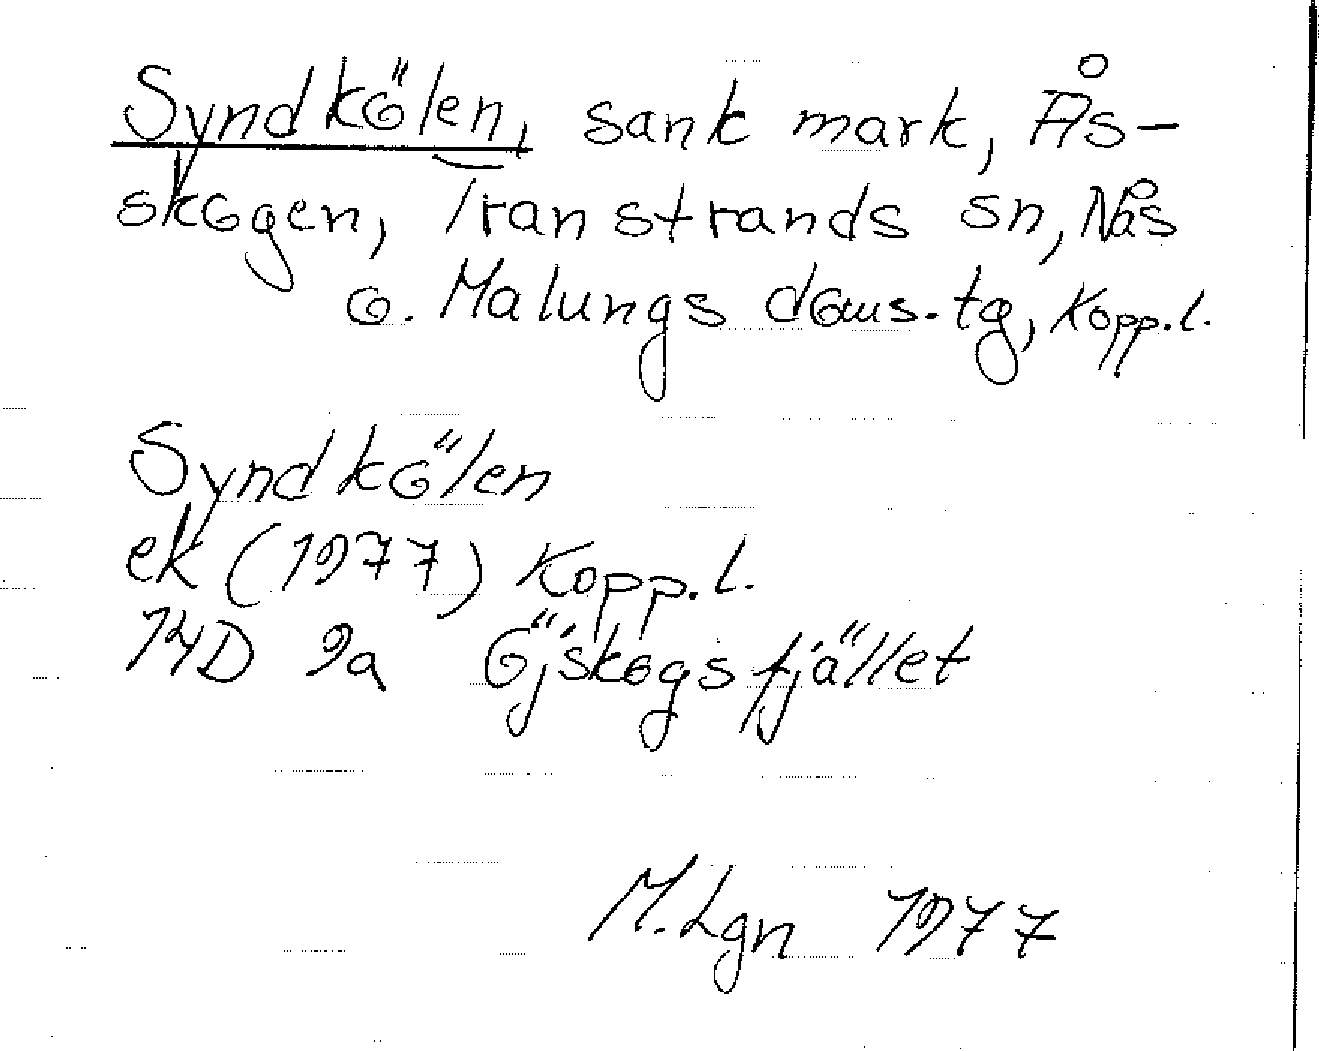 Syndkölen, sank mark, Ås-
skogen, Transtrands sn, Nås
o. Malungs doms.tg, Kopp.l.
Syndkölen
ek (1977) Kopp.l.
14D 9a Öjskogsfjället
M.Lgn 1977